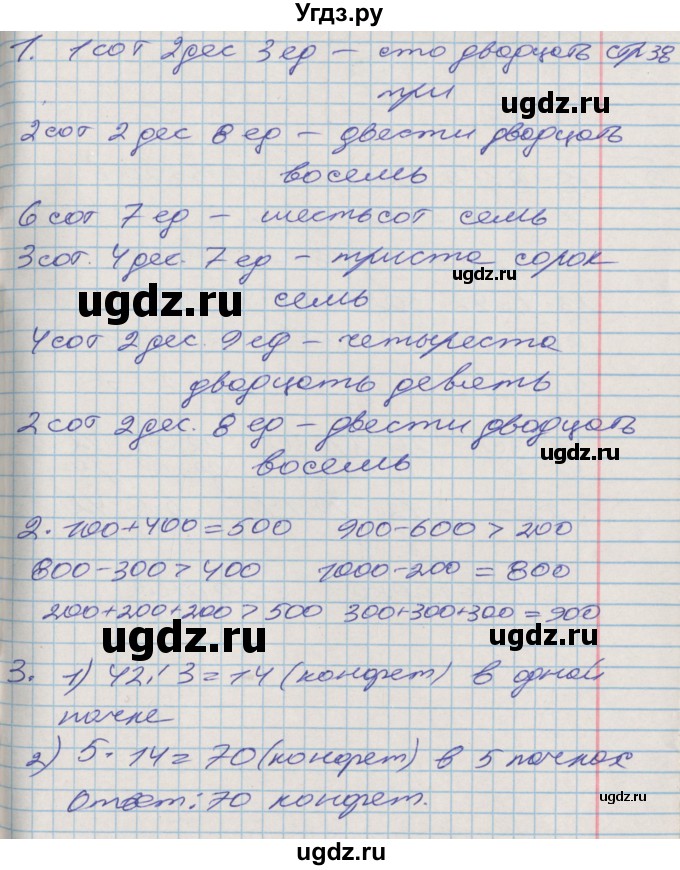 Угдз.ру
1. 1 сот 2 дес 3 ед – сто двадцать стр 38
три
ugdz.ru
2 сот 2 дес 8 ед – двести двадцать
восемь
6 сот 7 ед – шестьсот семь
3 сот. 4 дес. 7 ед – триста сорок
ugdz.ru
ugdz.ru
семь
4 сот 2 дес. 9 ед – четыреста
двадцать девять
2 сот 2 дес. 8 ед – двести двадцать
ugdz.ru
восемь
2. 100+400=500 900-600>200
800-300>400 1000-200=800
200+200+200>500 300+300+300=900
ugdz.ru
ugdz.ru
3. 1) 42:3=14 (конфет) в дной
пачке
2) 5·14=70 (конфет) в 5 пачках
Ответ: 70 конфет.
ugdz.ru
ugdz.ru